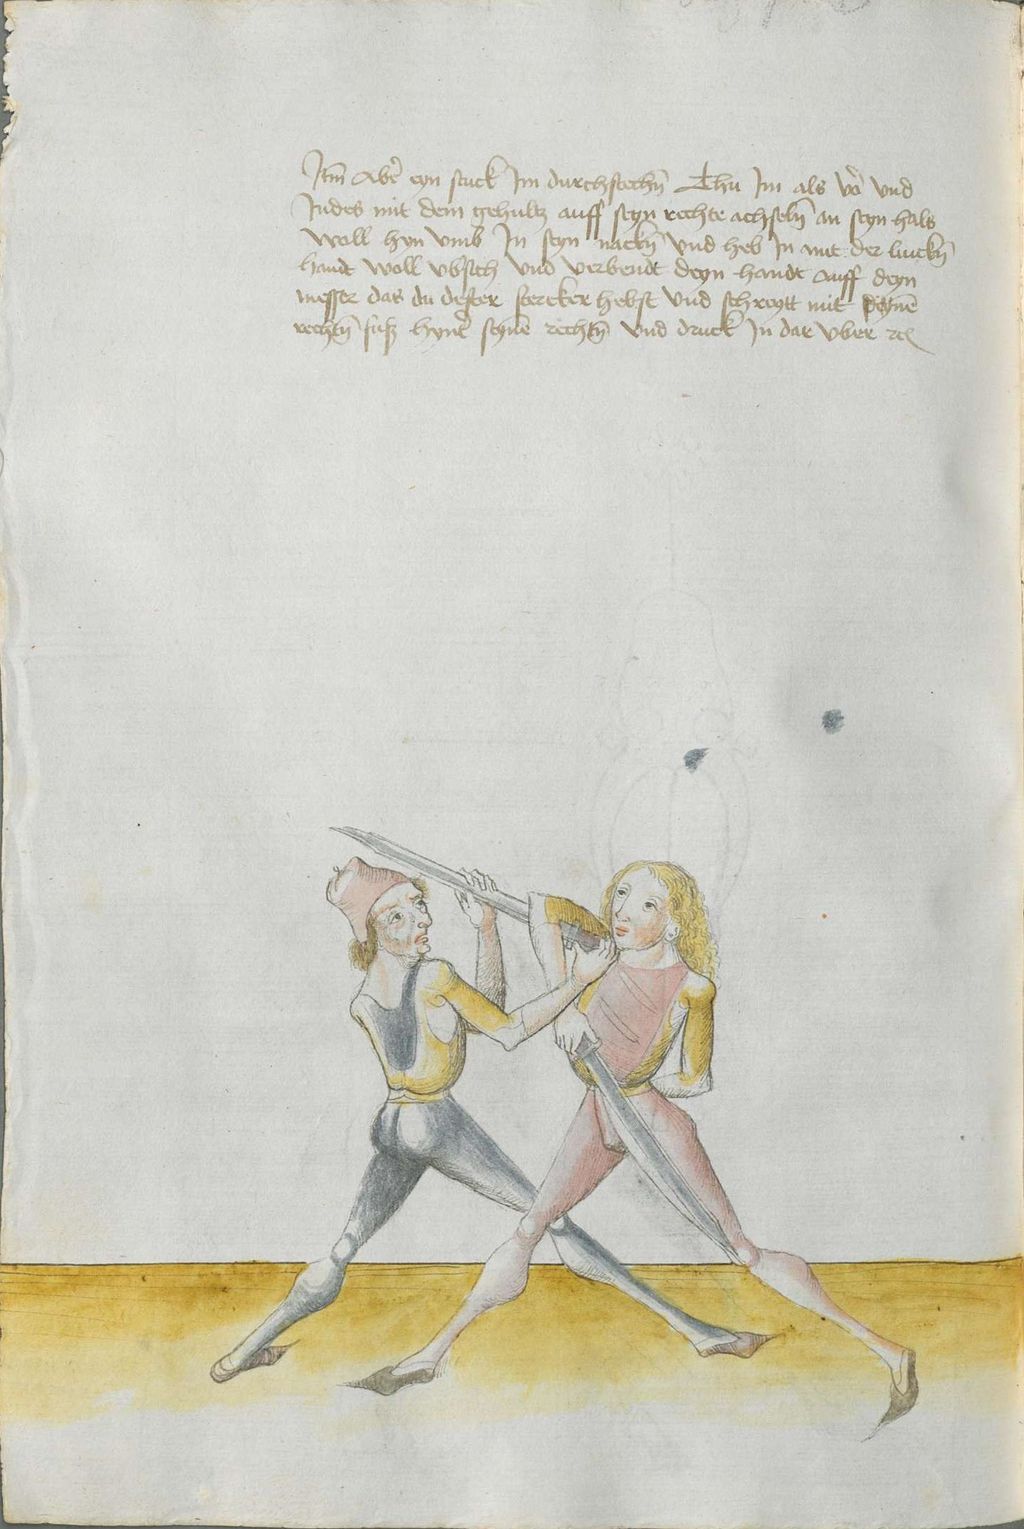 Itm̄ Abe᷑ eyn stuck Im durchstechn̄ Thu Im als vo᷑ vnd
Indes mit dem gehultz auff seyn rechte achseln̄ an seyn hals
woll hyn vmb In seyn nackn̄ vnd heb In mit der linckn̄
handt woll vbsich vnd verbendt deyn handt auff deyn
messer das du dester stercker hebst vnd schreytt mit deynē
rechtn̄ fuß hyne᷑ seynē rechtn̄ vnd druck In dar vber